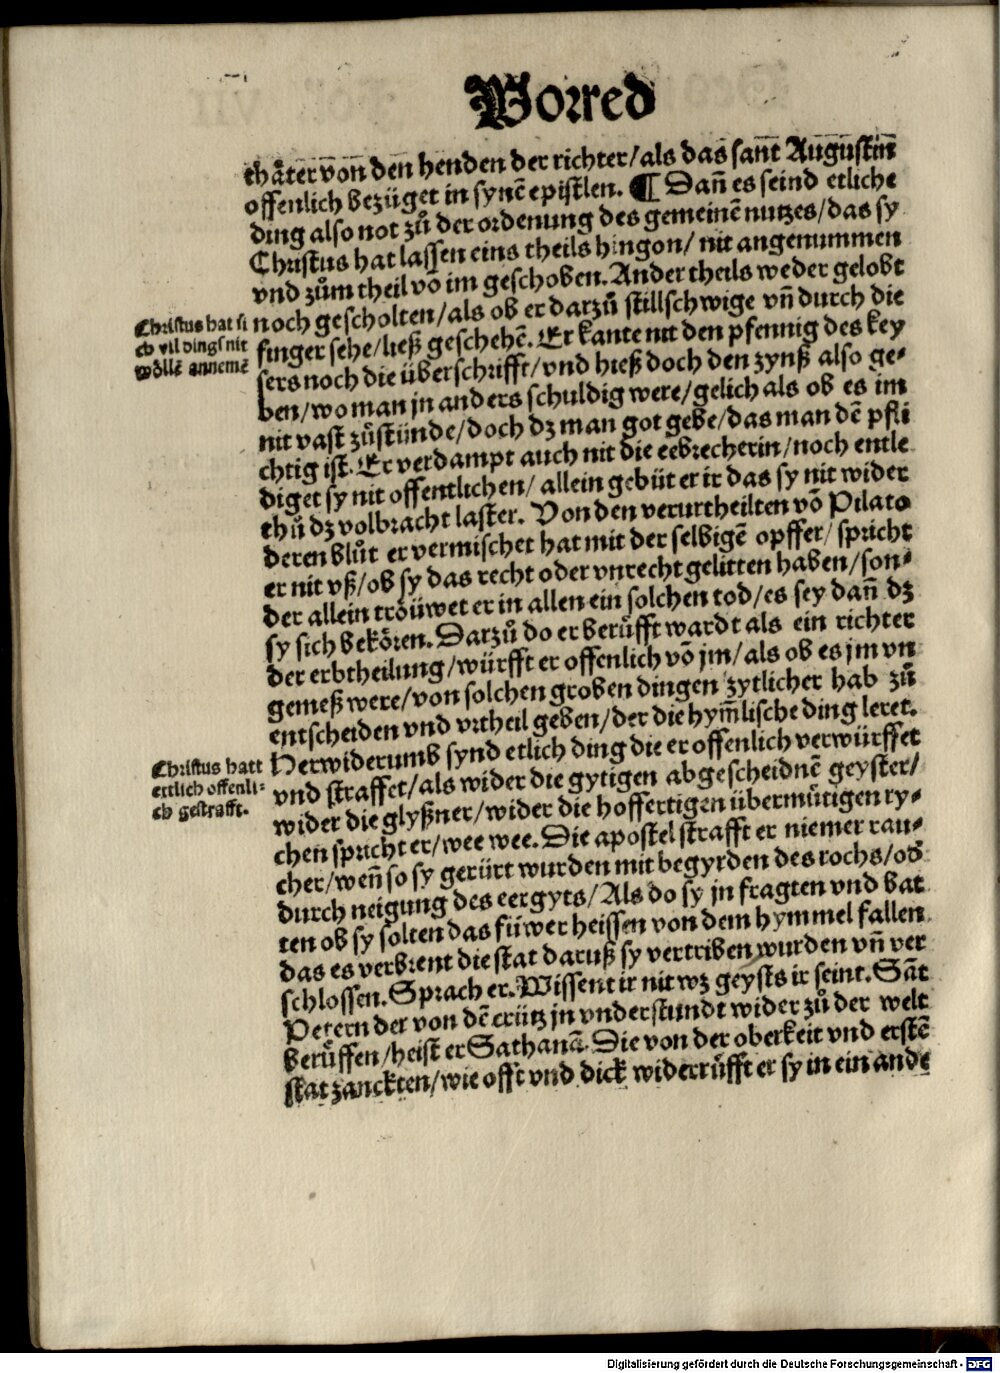 Vorred
thäter võn den henden der richter/als das sant Augustin
offenlich bezüget in synē epistlen. ¶ Dañ es seind etliche
ding also not zů der ordenung des gemeinē nutzes/das sy
Christus hat lassen eins theils hingon/ nit angenummen
vnd zům theil vō im geschoben. Ander theils weder gelobt
Christus hat si
ch vil dings nit
wöllē annemē
noch gescholten/als ob er darzů stillschwige vñ durch die
finger sehe/ließ geschehē. Er kante nit den pfennig des key
sers noch die überschrifft/vnd hieß doch den zynß also ge⸗
ben/wo man jn anders schuldig were/gelich als ob es im
nit vast zůstünde/doch dz man got gebe/das man dē pfli
chtig ist. Er verdampt auch nit die eebrecherin/noch entle
diget sy nit offentlichen/ allein gebüt er ir das sy nit wider
thů dz volbracht laster. Von den verurtheilten vō Pilato
deren blůt er vermischet hat mit der selbigē opffer/ spricht
er nit vß/ob sy das recht oder vnrecht gelitten haben/son⸗
der allein tröüwet er in allen ein solchen tod/es sey dañ dz
sy sich bekören. Darzů do er berůfft wardt als ein richter
der erbtheilung/würfft er offenlich vō jm/als ob es jm vn
gemeß were/von solchen groben dingen zytlicher hab zů
entscheiden vnd vrtheil geben/der die hym̄lische ding leret.
Herwiderumb synd etlich ding die er offenlich verwürffet
Christus hatt
ettlich offenli⸗
ch gestrafft.
vnd straffet/als wider die gytigen abgescheidnē geyster/
wider die glyßner/wider die hoffertigen übermůtigen ry⸗
chen spricht er/wee wee. Die apostel strafft er niemer rau⸗
cher/weñ so sy gerürt wurden mit begyrden des rochs/od
durch neigung des eergyts/Als do sy jn fragten vnd bat
ten ob sy solten das füwer heissen von dem hymmel fallen
das es verbrent die stat daruß sy vertriben wurden vñ ver
schlossen. Sprach er. Wissent ir nit wz geysts ir seint. Sāt
Petern der von dē crütz jn vnderstundt wider zů der welt
berůffen/heist er Sathanā. Die von der oberkeit vnd erstē
stat zanckten/wie offt vnd dick widerrůfft er sy in ein ande
Digitalisierung gefördert durch die Deutsche Forschungsgemeinschaft - DFG